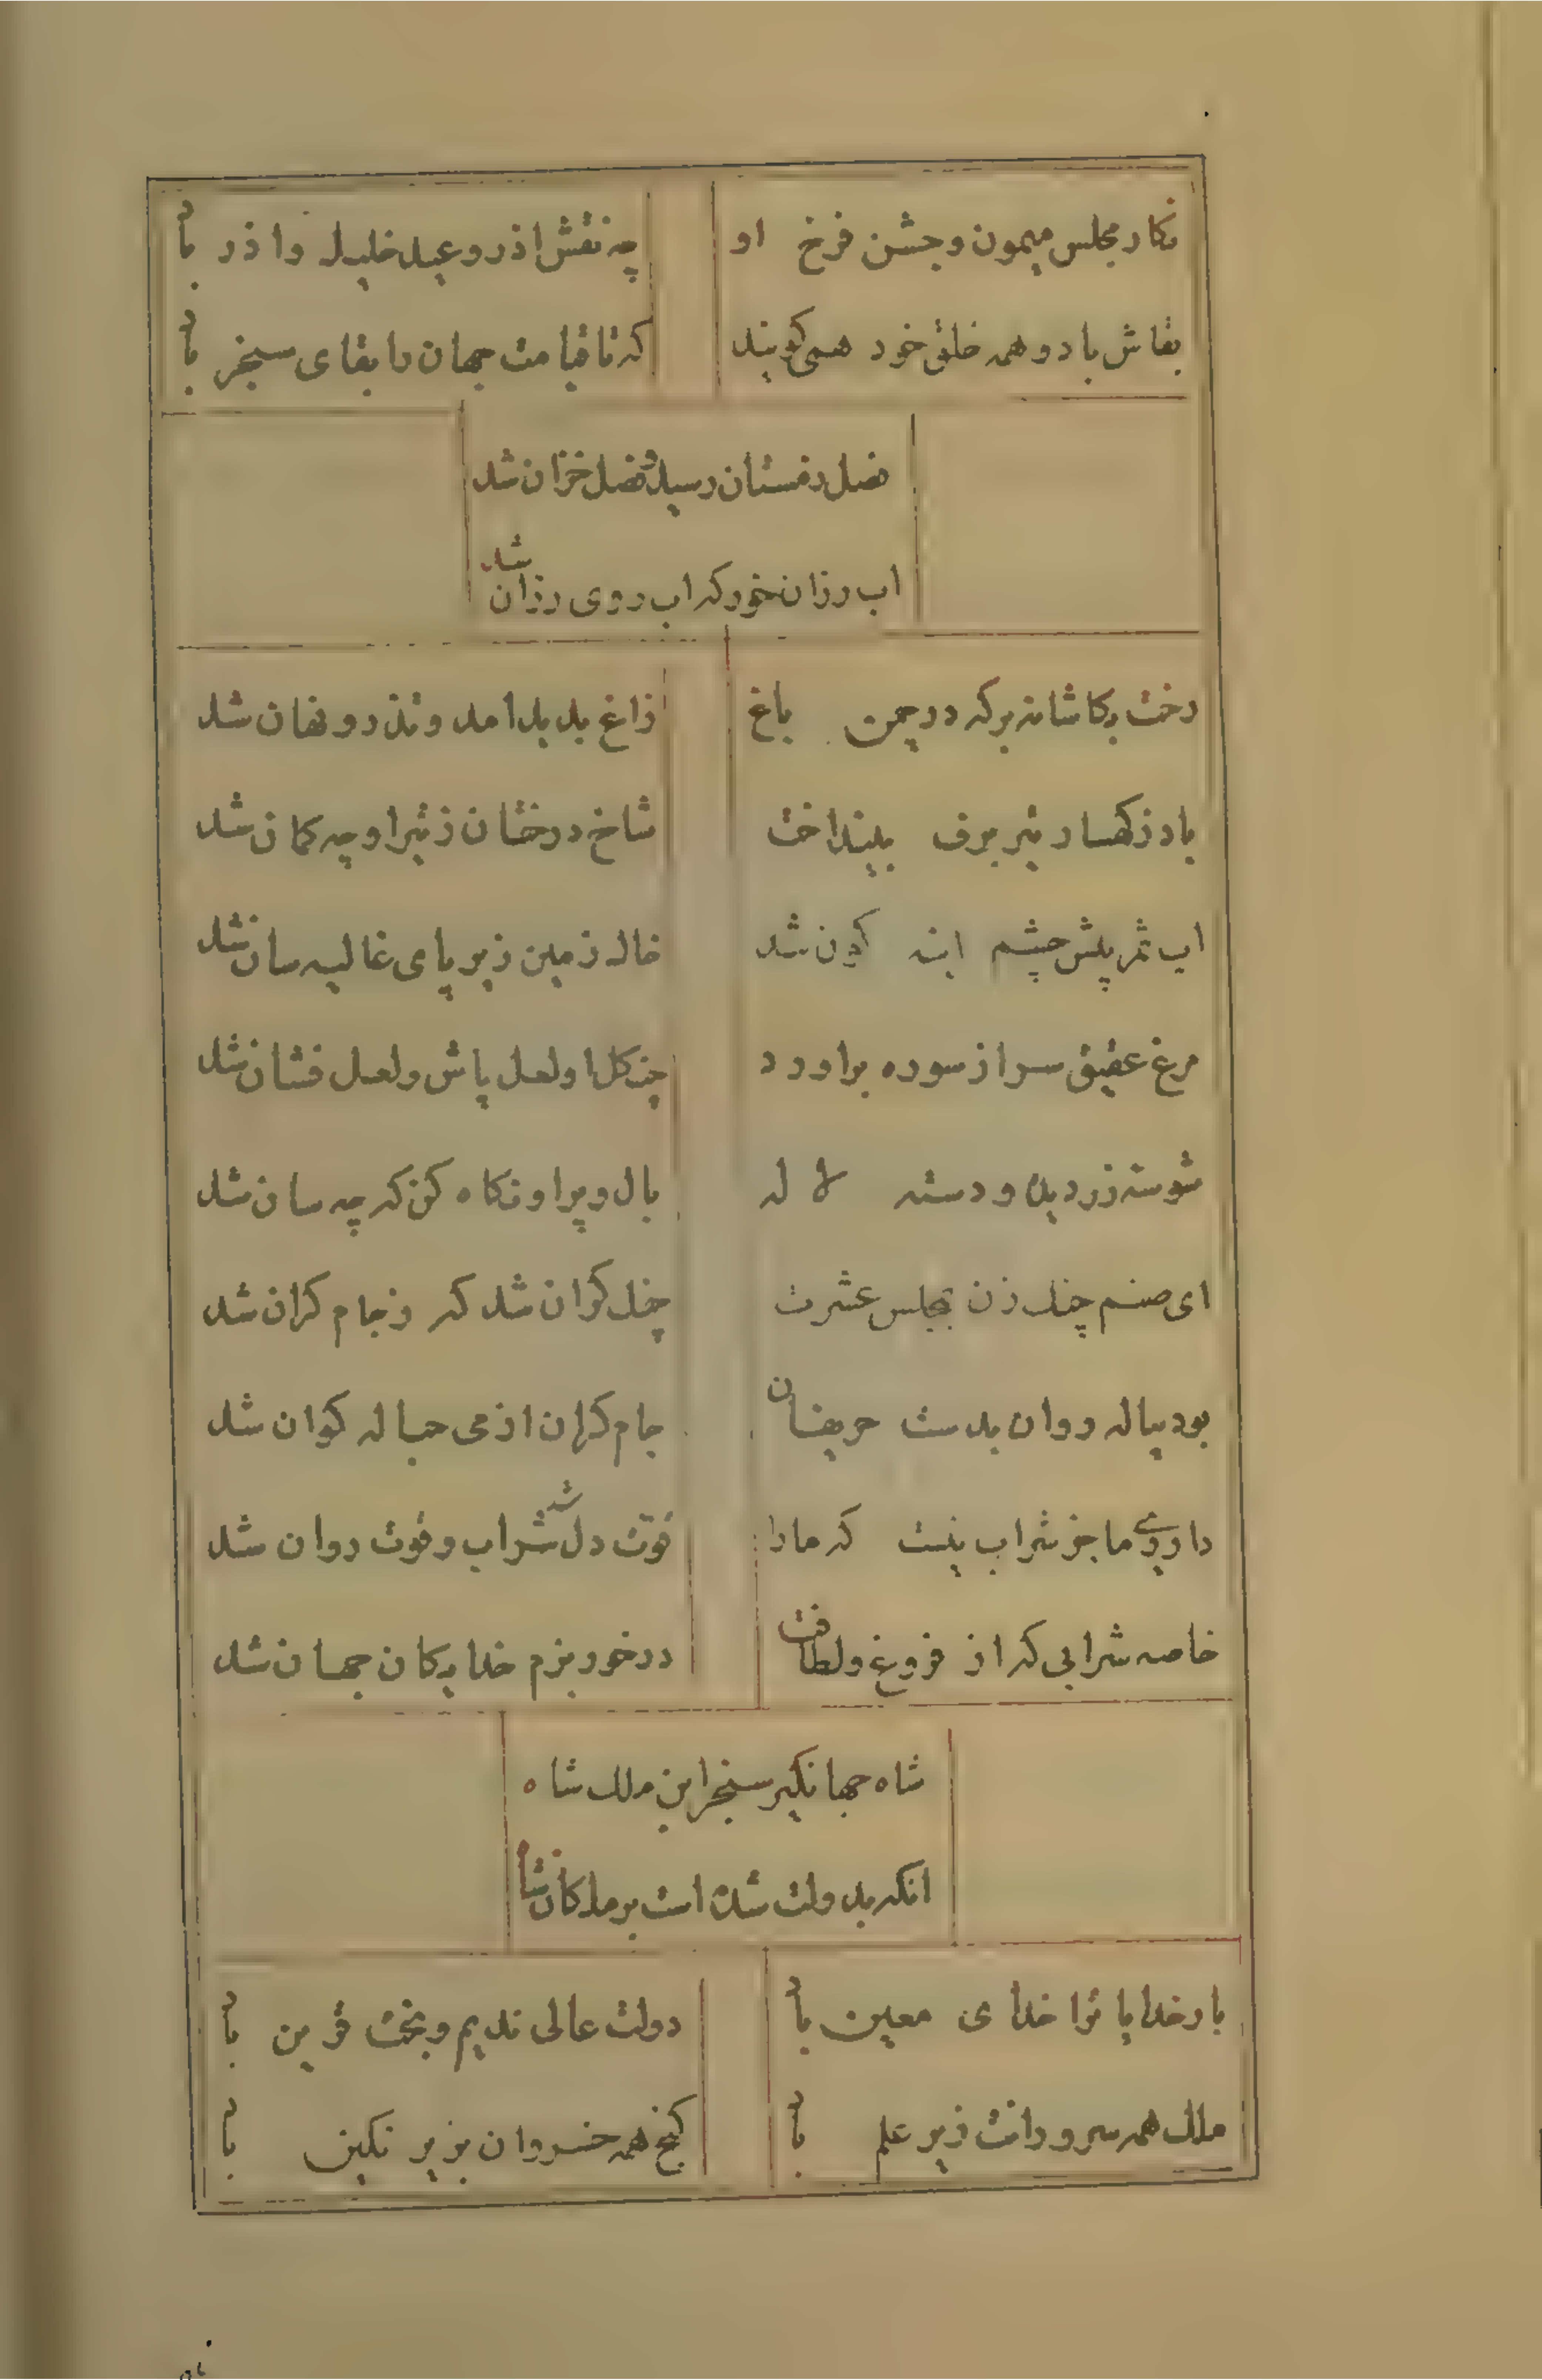 نکار مجلس میمون و جشن فرخ او چه نقش اذر و عید خلیل و اذر باد
بقاش باد و همه خلق خود همی کویند که تا قیامت جهان را بقای سنجر باد
فصل زمستان رسید و فصل خزان شد
اب رزان خور که اب روی رزان شد
رخت بکاشانه بر که در چمن باغ زاغ بدید امد و تذرو نهان شد
باد ز کهسار تیر برف بینداخت شاخ درختان ز تیر او چه کمان شد
اب شمر پیش چشم اینه کون شد خاک زمین زیر پای غالیه سان شد
مرغ عقیق سر از سوده براورد کل او لعل پاش و لعل فشان شد
شوسته زر دید و دسته لا له بال و پر او نکاه کن که چه سان شد
ای صنم چنک زن بمجلس عشرت کران شد که وز جام کران شد
بود پیاله روان بدست حریفان جام کران از می کران شد
داروی ما جز شراب نیست که ما را قوت دل شد شراب و قوت روان شد
خاصه شرابی که از فروغ و لطافت درخور بزم خدایکان جهان شد
شاه جهانکیر سنجر ابن ملک شاه
انکه بدولت شده است بر ملکان شاه
بار خدایا ترا خدای معین باد دولت عالی ندیم و بخت قرین باد
ملک همه سرورانت زیر علم باد کنج همه خسروان بزیر نکین باد